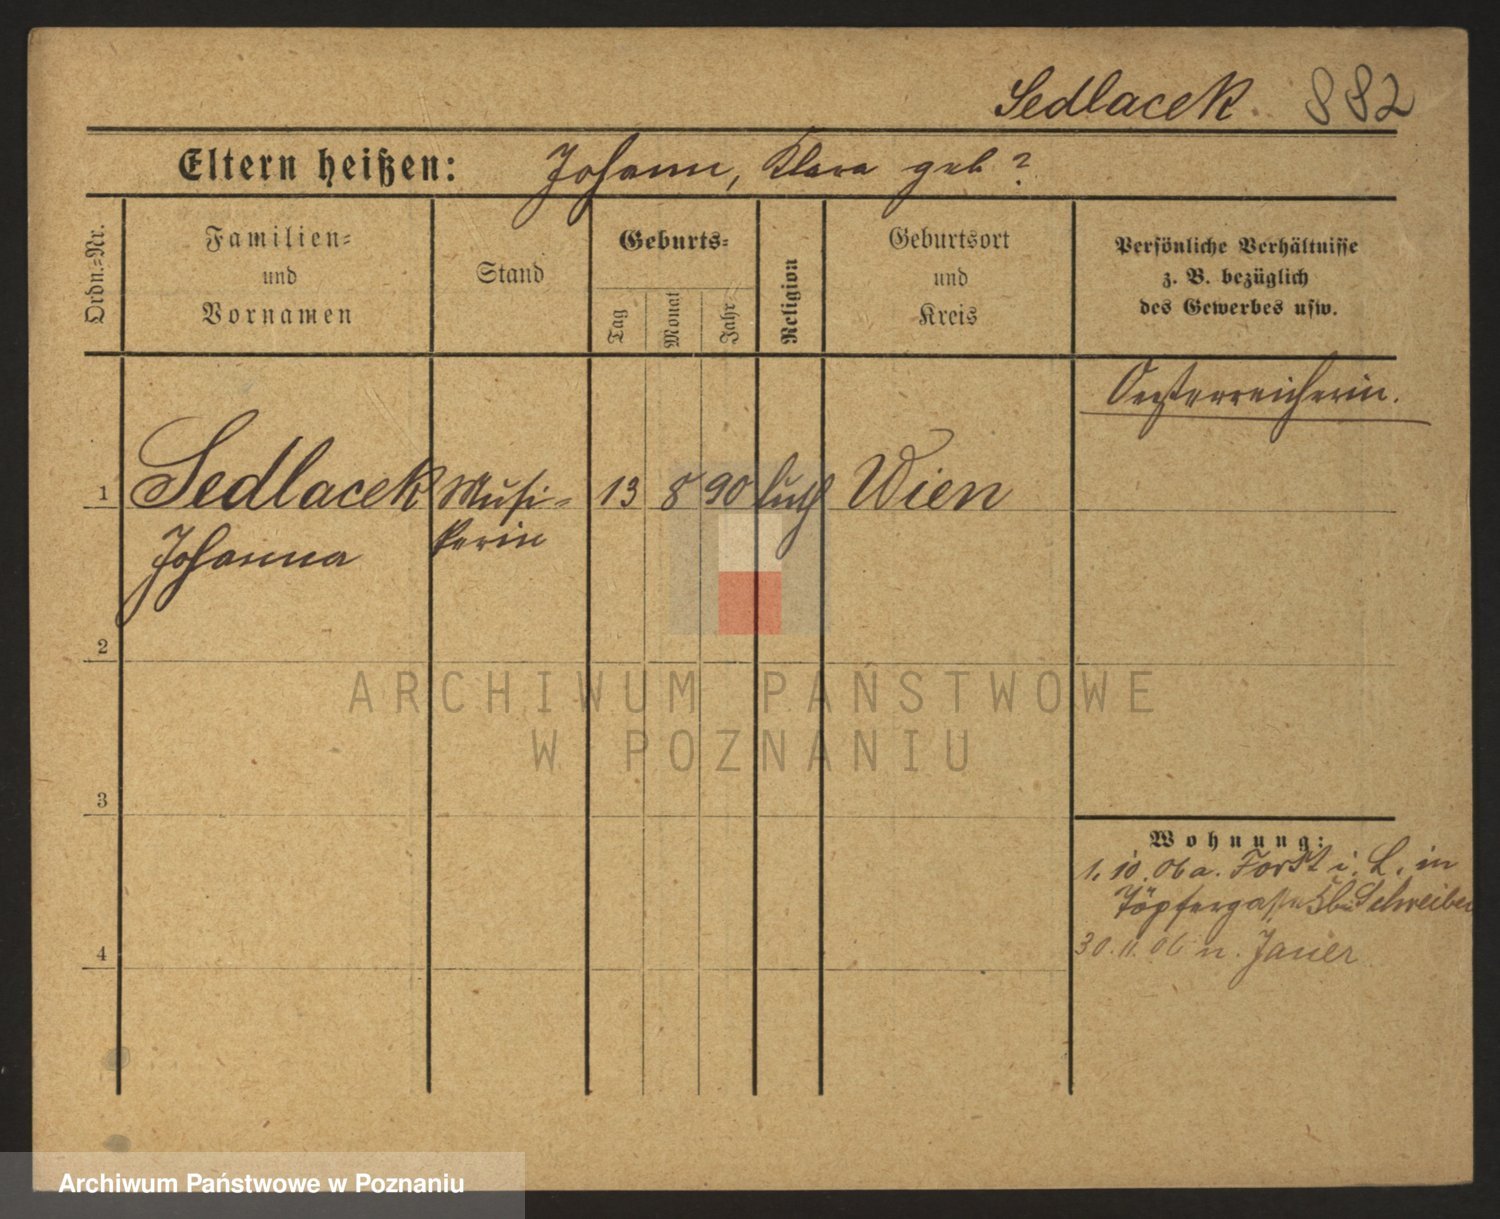 Sedlacek. 882
Eltern heißen: Johann, Klara geb ?
Ordn.-Nr.
Familien-
und
Vornamen
Stand
Geburts-
Tag
Monat
Jahr
Religion
Geburtsort
und
Kreis
Persönliche Verhältnisse
z. B. bezüglich
des Gewerbes usw.
Oesterreicherin.
1 Sedlacek Musi- 13 8 90 luth Wien
Johanna kerin
2
ARCHIWUM PAŃSTWOWE
W POZNANIU
3
Wohnung:
1. 10. 06 a. Forst i. L. in
Töpfergasse 5 b Schreiber
4
30. 11. 06 n. Jauer
Archiwum Państwowe w Poznaniu